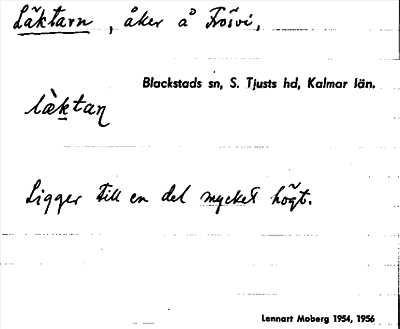 Läktarn, åker å Frösvi,
Blackstads sn, S. Tjusts hd, Kalmar län.
læ̀ktaɳ
Ligger till en del mycket högt.
Lennart Moberg 1954, 1956